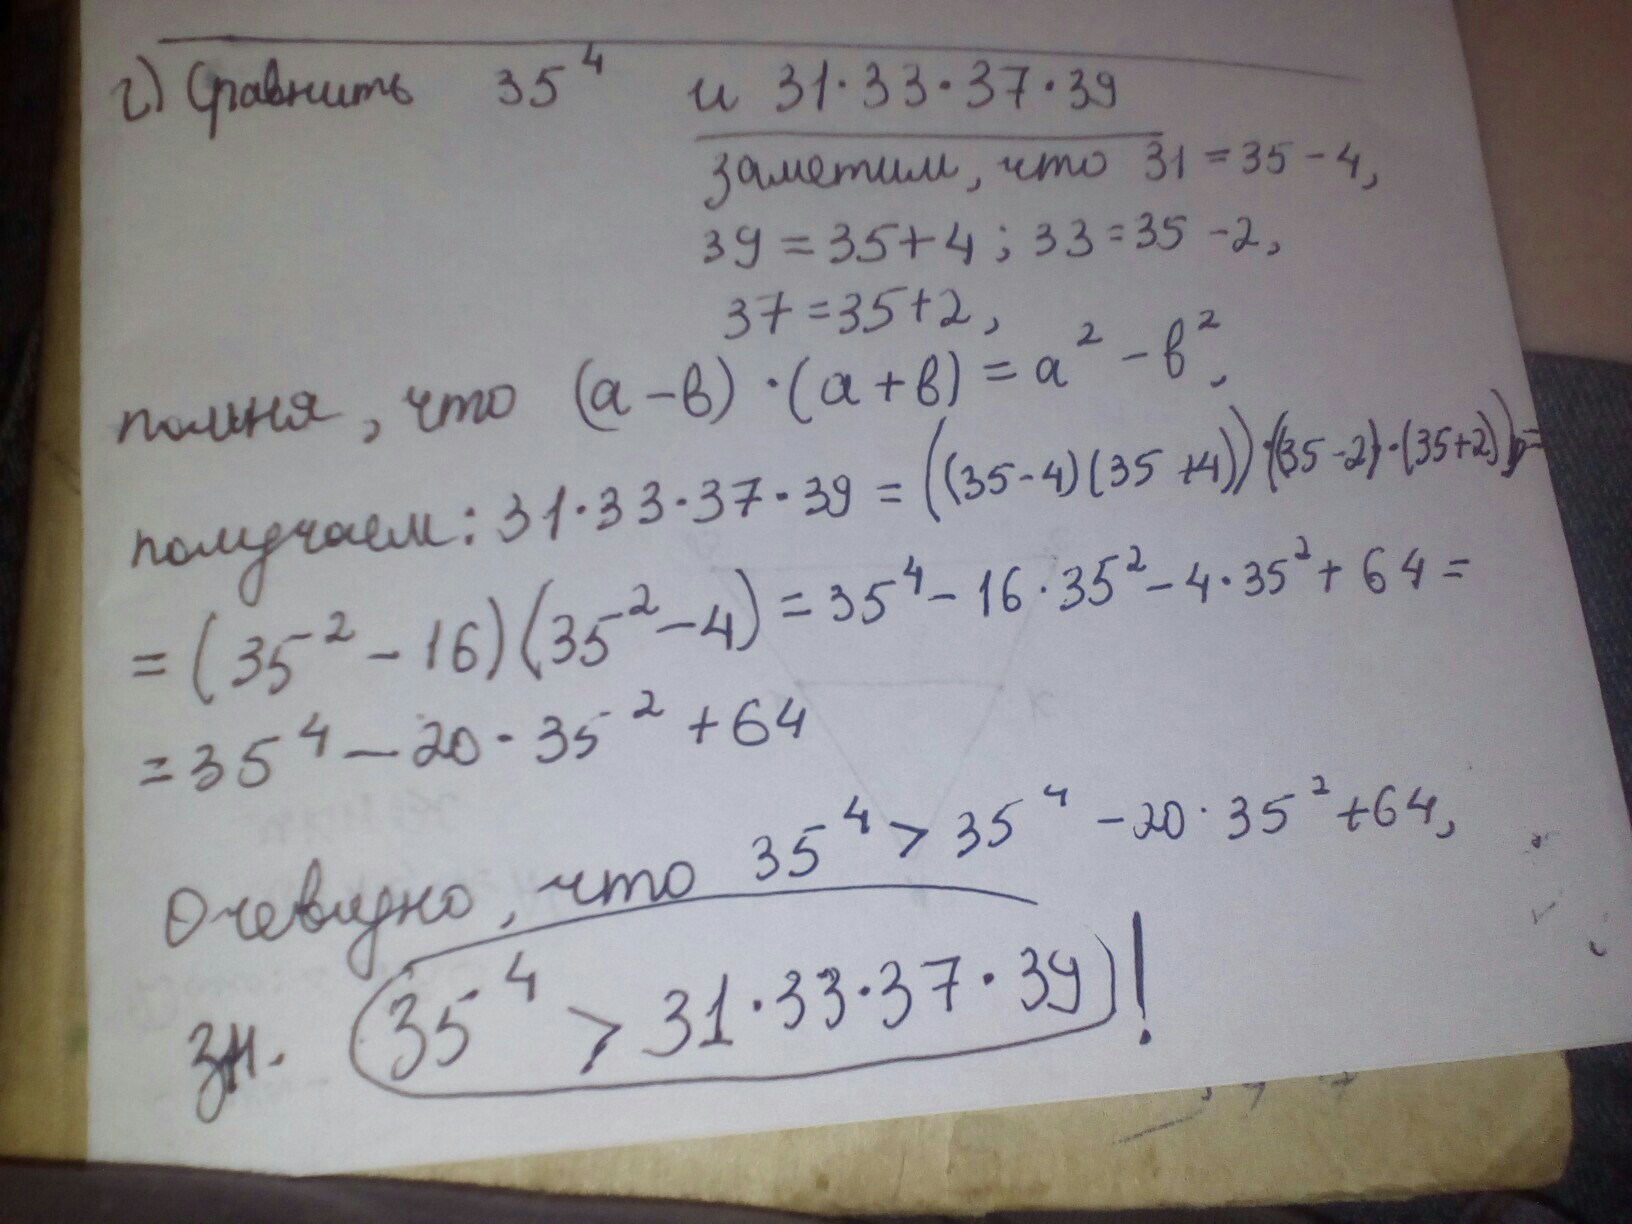 г) Сравнить 35⁴ и 31·33·37·39
заметим, что 31 = 35 - 4,
39 = 35 + 4 ; 33 = 35 - 2,
37 = 35 + 2,
помня, что (a - b) · (a + b) = a² - b²,
получаем: 31·33·37·39 = ((35-4)(35+4))·(35-2)·(35+2)) =
= (35² - 16)(35² - 4) = 35⁴ - 16·35² - 4·35² + 64 =
= 35⁴ - 20·35² + 64
Очевидно, что 35⁴ > 35⁴ - 20·35² + 64,
зн. 35⁴ > 31·33·37·39 !